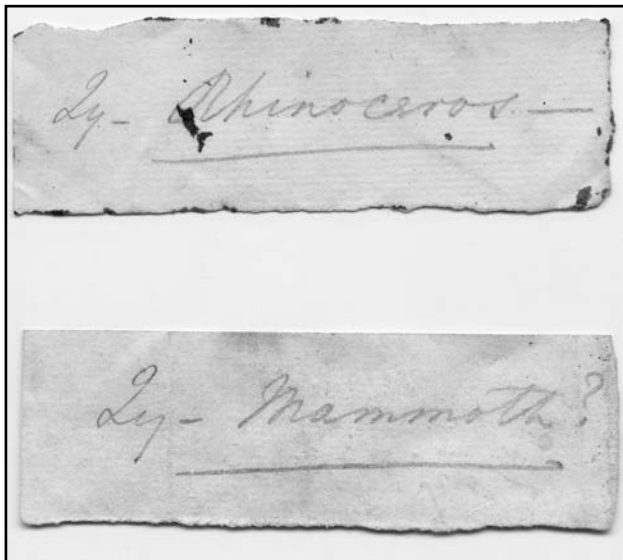 Qy- Rhinoceros —
Qy- Mammoth?